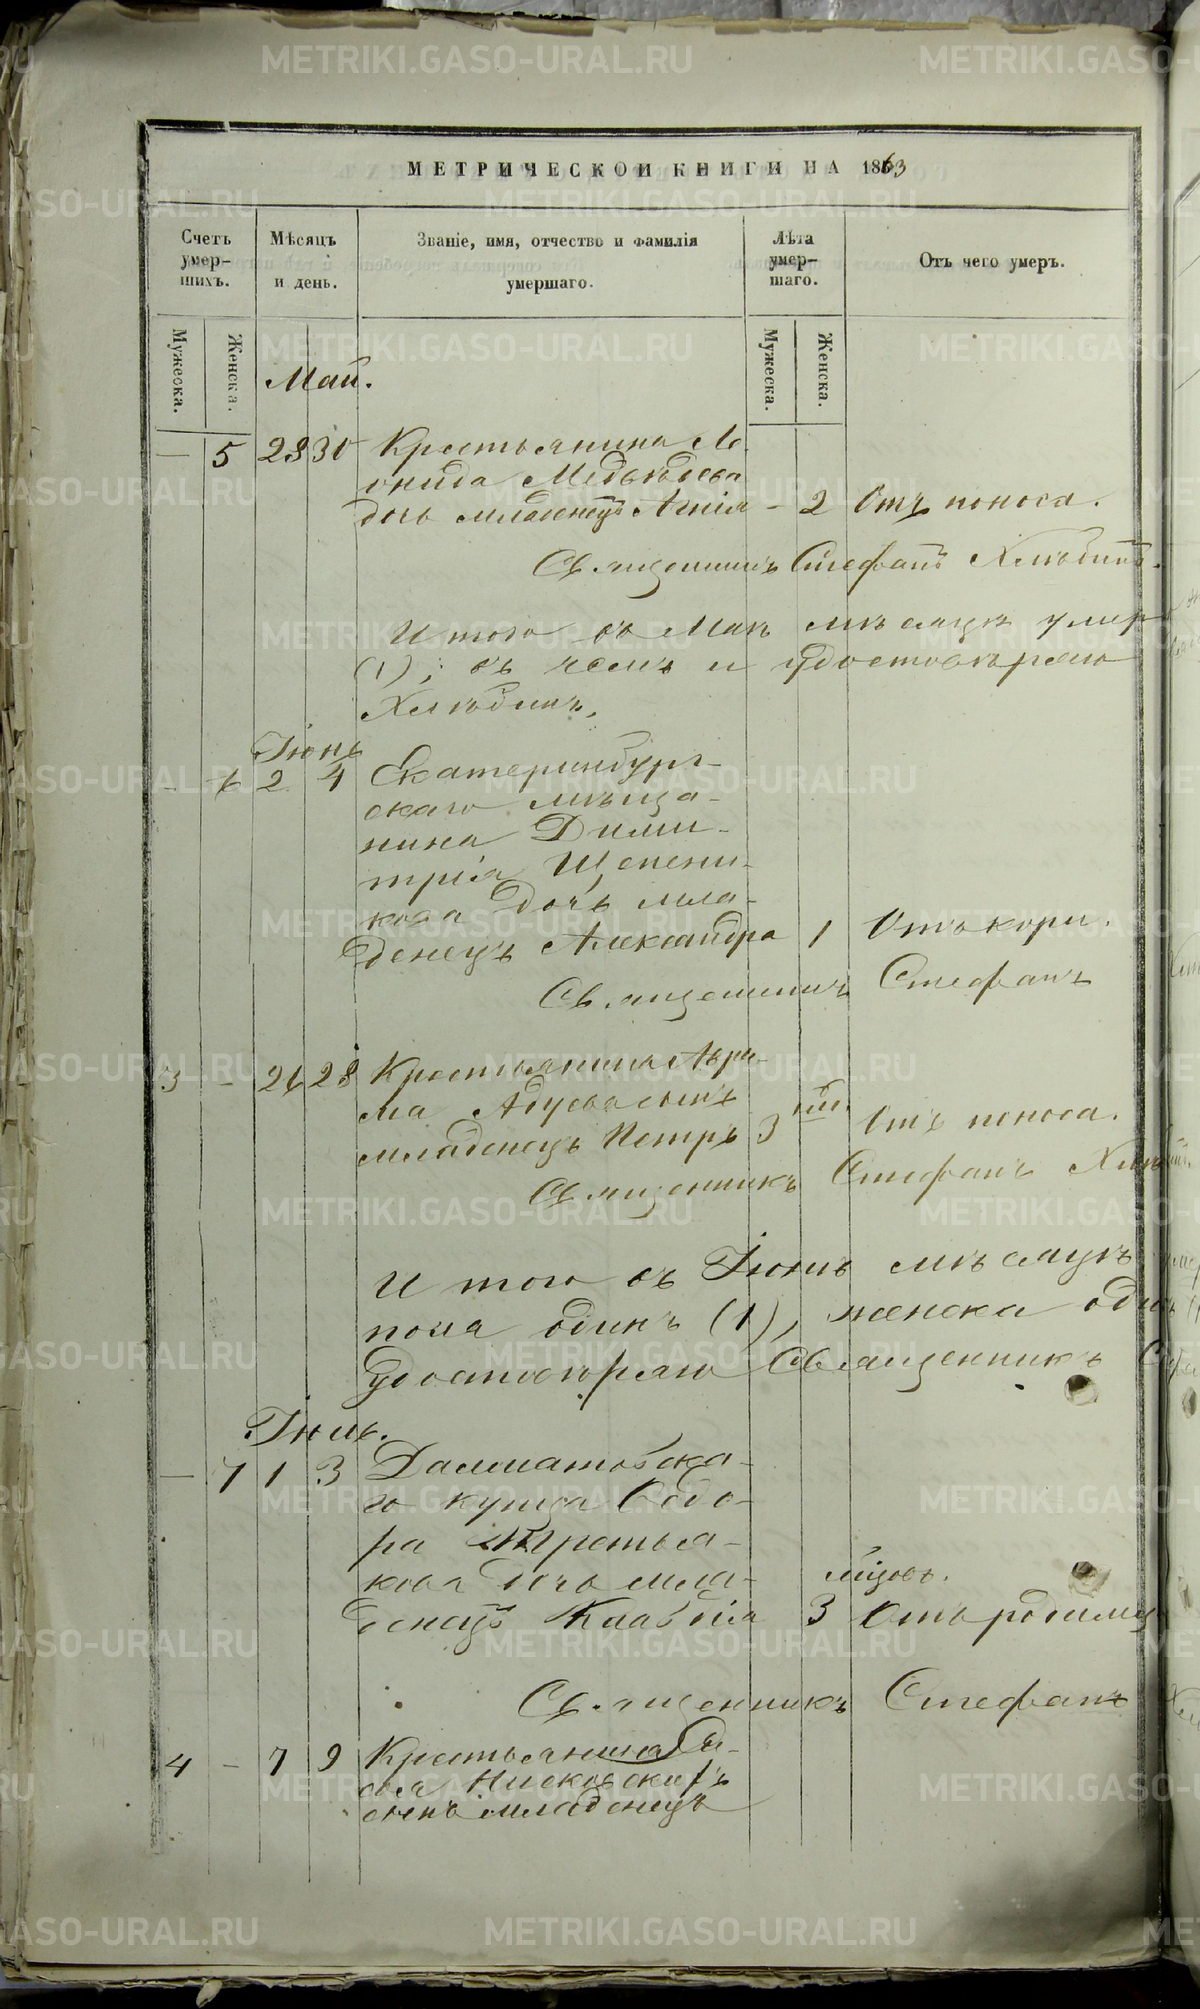 МЕТРИЧЕСКОЙ КНИГИ НА 1863
Счетъ умер-шихъ.
Мѣсяцъ и день.
Званіе, имя, отчество и фамилія умершаго.
Лѣта умер-шаго.
Отъ чего умеръ.
Мужеска. Женска.
Мужеска. Женска.
Май.
— 5 28 30 Крестьянина Ле
онида Медвѣдева
дочь младенецъ Агнія - 2 Отъ поноса.
Священникъ Стефанъ Хлѣбинъ.
Итого въ Маѣ мѣсяцѣ умер
(1); въ чемъ и удостовѣряю
Хлѣбинъ.
Іюнь
- 6 2 4 Екатеринбург-
скаго мѣща-
нина Дими-
трія Щепени-
кова дочь мла-
денецъ Александра 1 Отъ кори.
Священникъ Стефанъ
3 - 26 28 Крестьянина
сынъ
младенецъ Петръ 3 Отъ поноса.
Священникъ Стефанъ
Итого въ Іюнѣ мѣсяцѣ
пола одинъ (1), женска один
удостовѣряю Священникъ
Іюль.
— 7 1 3 Далматовска-
го купца Ѳедо-
ра Третья-
кова дочь мла- мѣсяц.
денецъ Клавдія 3 Отъ родимц
Священникъ Стефанъ
4 - 7 9 Крестьянина
сынъ младенецъ